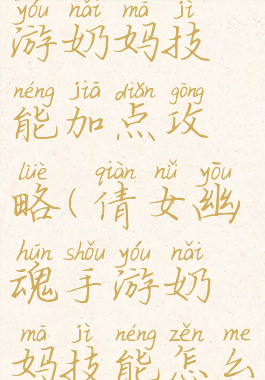 yóu nǎi mā jì
游奶妈技
néng jiā diǎn gōng
能加点攻
lüè qiàn nǚ yōu
略(倩女幽
hún shǒu yóu nǎi
魂手游奶
mā jì néng zěn me
妈技能怎么